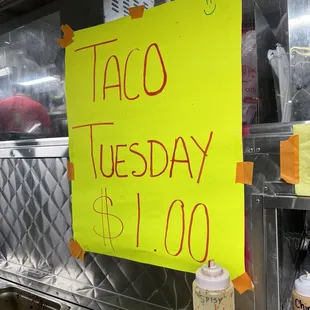 TACO
TUESDAY
$1.00
SPICY